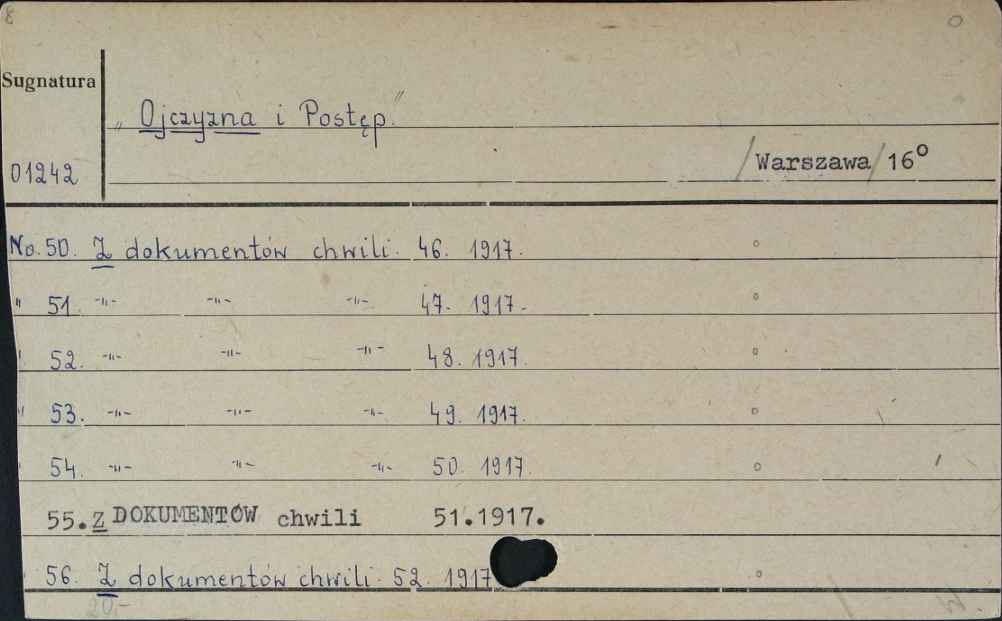 8
Sugnatura
„Ojczyzna i Postęp"
01242
/Warszawa/ 16°
No. 50. Z dokumentów chwili. 46. 1917.
" 51. -"- -"- -"- 47. 1917.
" 52. -"- -"- -"- 48. 1917.
" 53. -"- -"- -"- 49. 1917.
54. -"- -"- -"- 50. 1917.
55. Z DOKUMENTÓW chwili 51.1917.
56. Z dokumentów chwili. 52. 1917
20.-